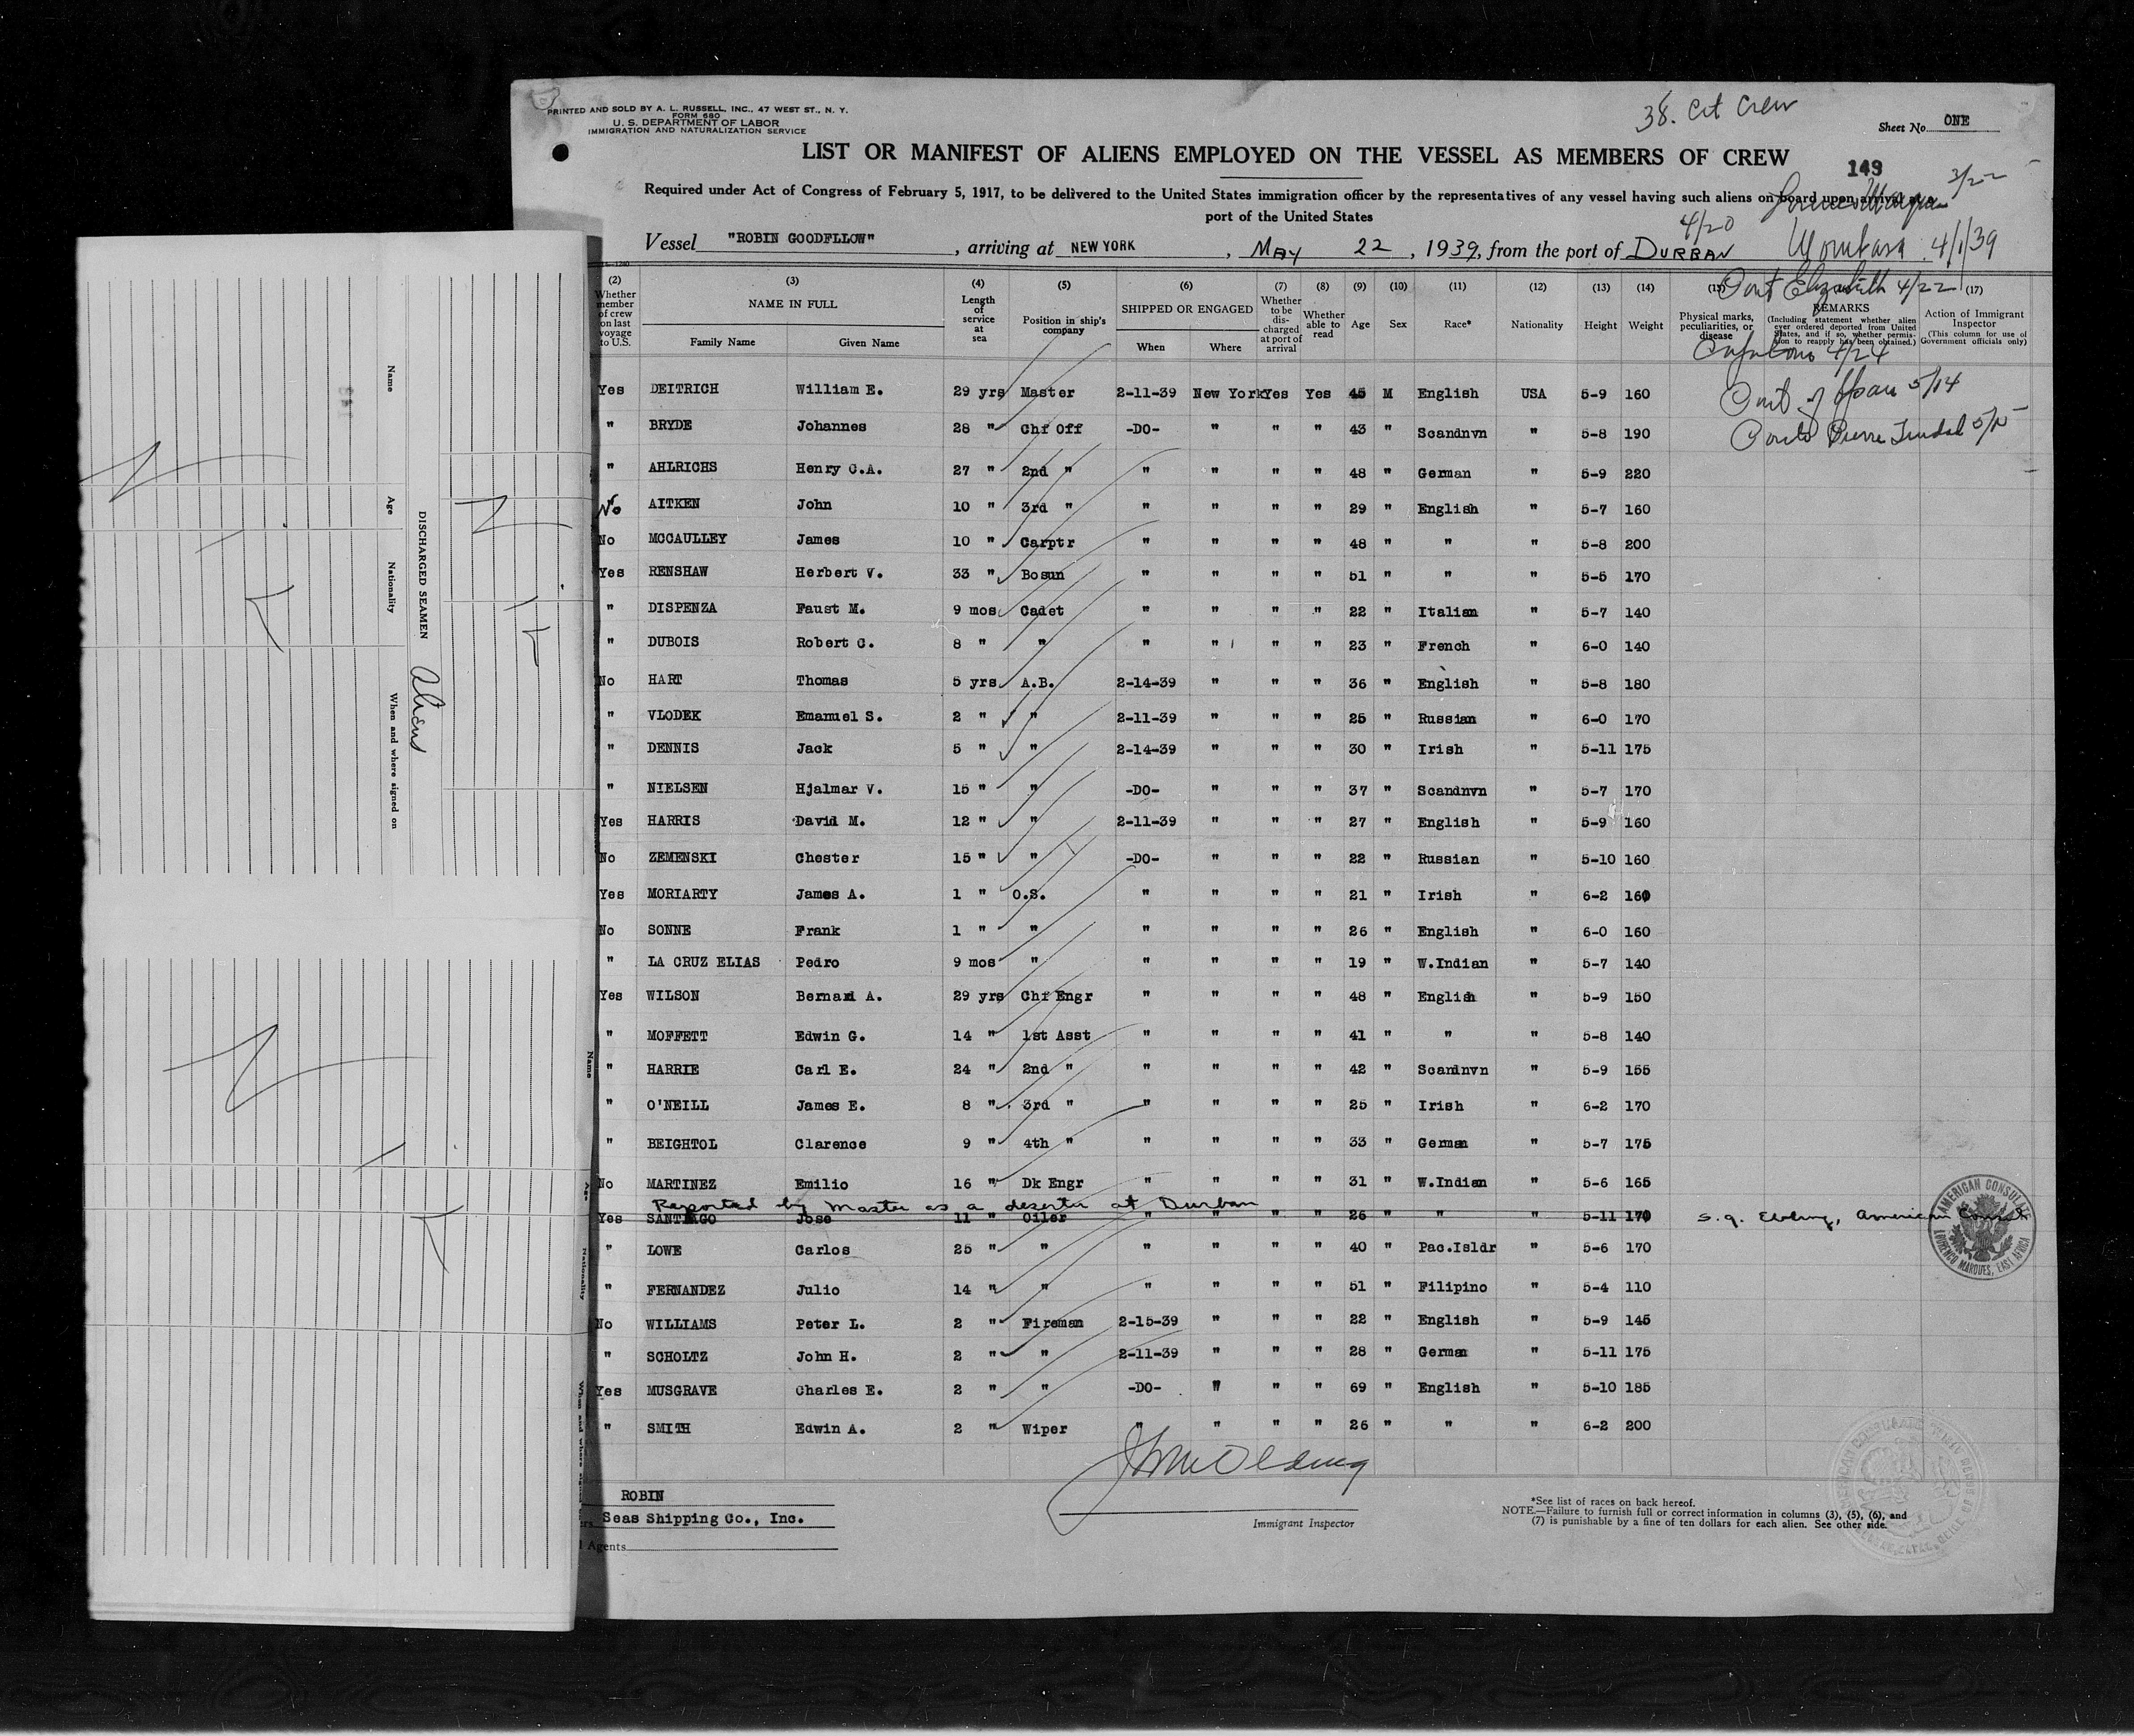 PRINTED AND SOLD BY A. L. RUSSELL, INC., 47 WEST ST., N. Y.
FORM 680
U. S. DEPARTMENT OF LABOR
IMMIGRATION AND NATURALIZATION SERVICE
38. Cit Crew
Sheet No. ONE
LIST OR MANIFEST OF ALIENS EMPLOYED ON THE VESSEL AS MEMBERS OF CREW
149
Required under Act of Congress of February 5, 1917, to be delivered to the United States immigration officer by the representatives of any vessel having such aliens on board upon arrival at a
port of the United States
3/22
4/20
Vessel "ROBIN GOODFLLOW", arriving at NEW YORK, MAY 22, 1939, from the port of DURBAN
Mombasa 4/1/39
Port Elizabeth 4/22
4/24
Port of Spain 5/14
(2) Whether member of crew on last voyage to U.S.
(3) NAME IN FULL
Family Name Given Name
(4) Length of service at sea
(5) Position in ship's company
(6) SHIPPED OR ENGAGED
When Where
(7) Whether to be discharged at port of arrival
(8) Whether able to read
(9) Age
(10) Sex
(11) Race*
(12) Nationality
(13) Height
(14) Weight
Physical marks, peculiarities, or disease
REMARKS
(Including statement whether alien ever ordered deported from United States, and if so, whether permission to reapply has been obtained.)
(17) Action of Immigrant Inspector
(This column for use of Government officials only)
Yes DEITRICH William E. 29 yrs Master 2-11-39 New York Yes Yes 45 M English USA 5-9 160
" BRYDE Johannes 28 " Chf Off -DO- " " " 43 " Scandnvn " 5-8 190
" AHLRICHS Henry C.A. 27 " 2nd " " " " " 48 " German " 5-9 220
No AITKEN John 10 " 3rd " " " " " 29 " English " 5-7 160
No MCCAULLEY James 10 " Carptr " " " " 48 " " " 5-8 200
Yes RENSHAW Herbert V. 33 " Bosun " " " " 51 " " " 5-5 170
" DISPENZA Faust M. 9 mos Cadet " " " " 22 " Italian " 5-7 140
" DUBOIS Robert C. 8 " " " " " " 23 " French " 6-0 140
No HART Thomas 5 yrs A.B. 2-14-39 " " " 36 " English " 5-8 180
" VLODEK Emanuel S. 2 " " 2-11-39 " " " 25 " Russian " 6-0 170
" DENNIS Jack 5 " " 2-14-39 " " " 30 " Irish " 5-11 175
" NIELSEN Hjalmar V. 15 " " -DO- " " " 37 " Scandnvn " 5-7 170
Yes HARRIS David M. 12 " " 2-11-39 " " " 27 " English " 5-9 160
No ZEMENSKI Chester 15 " " -DO- " " " 22 " Russian " 5-10 160
Yes MORIARTY James A. 1 " O.S. " " " " 21 " Irish " 6-2 160
No SONNE Frank 1 " " " " " " 26 " English " 6-0 160
" LA CRUZ ELIAS Pedro 9 mos " " " " " 19 " W.Indian " 5-7 140
Yes WILSON Bernard A. 29 yrs Chf Engr " " " " 48 " English " 5-9 150
" MOFFETT Edwin G. 14 " 1st Asst " " " " 41 " " " 5-8 140
" HARRIE Carl E. 24 " 2nd " " " " " 42 " Scandnvn " 5-9 155
" O'NEILL James E. 8 " 3rd " " " " " 25 " Irish " 6-2 170
" BEIGHTOL Clarence 9 " 4th " " " " " 33 " German " 5-7 175
No MARTINEZ Emilio 16 " Dk Engr " " " " 31 " W.Indian " 5-6 165
Reported by Master as a deserter at Durban
Yes SANTIAGO Jose 11 " Oiler " " " " 26 " " " 5-11 170 American Consul
" LOWE Carlos 25 " " " " " " 40 " Pac.Isldr " 5-6 170
" FERNANDEZ Julio 14 " " " " " " 51 " Filipino " 5-4 110
No WILLIAMS Peter L. 2 " Fireman 2-15-39 " " " 22 " English " 5-9 145
" SCHOLTZ John H. 2 " " 2-11-39 " " " 28 " German " 5-11 175
Yes MUSGRAVE Charles E. 2 " " -DO- " " " 69 " English " 5-10 185
" SMITH Edwin A. 2 " Wiper " " " " 26 " " " 6-2 200
AMERICAN CONSULATE
LOURENCO MARQUES, EAST AFRICA
ROBIN
Seas Shipping Co., Inc.
Agents
Immigrant Inspector
*See list of races on back hereof.
NOTE.—Failure to furnish full or correct information in columns (3), (5), (6), and
(7) is punishable by a fine of ten dollars for each alien. See other side.
DISCHARGED SEAMEN
Aliens
Name
Age
Nationality
When and where signed on
Name
Age
Nationality
When and where signed on